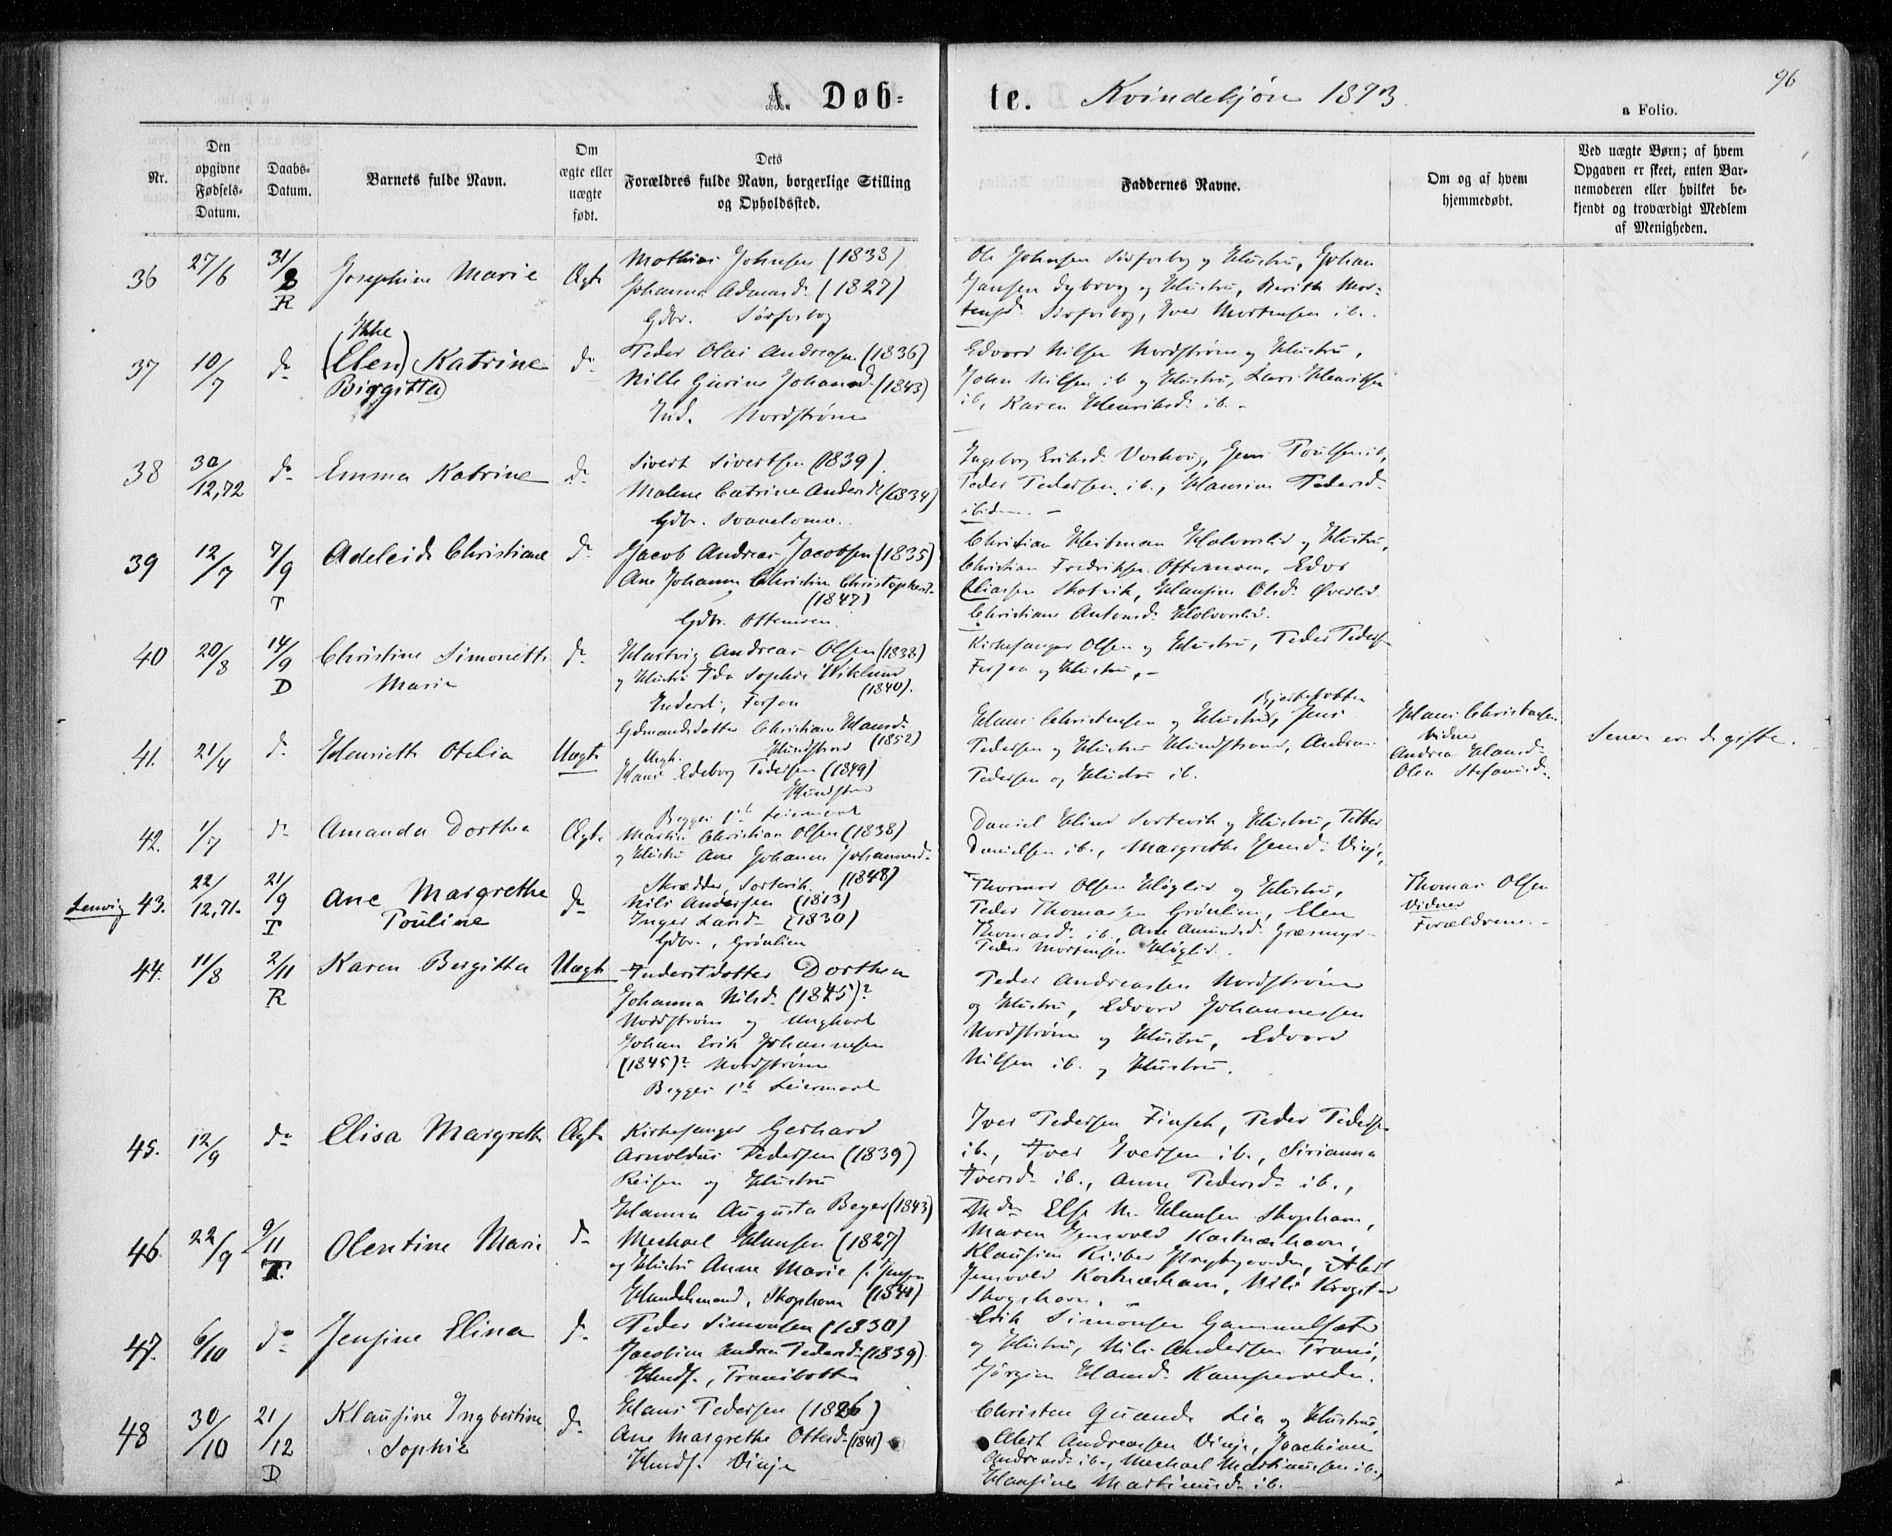 96
A. Døb-
te. Kvindekjøn 1873.
a Folio.
Nr.
Den opgivne Fødsels-Datum.
Daabs-Datum.
Barnets fulde Navn.
Om ægte eller uægte født.
Dets Forældres fulde Navn, borgerlige Stilling og Opholdssted.
Faddernes Navne.
Om og af hvem hjemmedøbt.
Ved uægte Børn; af hvem Opgaven er skeet, enten Barnemoderen eller hvilket bekjendt og troværdigt Medlem af Menigheden.
36 27/6 31/8 R Josephine Marie Ægte
Mathias Johnsen (1833)
Johanna Admundsd. (1827)
Gdbr. Sørfosbog
Ole Johnsen Sørfosbog og Hustru, Johan
Jansen Dybvog og Hustru, Berith Mor-
tensd. Sørfosbog, Iver Mortensen ib.
37 10/7 do (Elen) Katrine do
Ikke
Birgitta
Peder Olai Andreasen (1836)
Nille Gurine Johansd. (1843)
Ind. Nordstrøm
Edvard Nilsen Nordstrøm og Hustru,
John Nilsen ib og Hustru, Lars Henriksen
ib, Karen Henriksd. ib.
38 30/12,72 do Emma Katrine do
Sivert Sivertsen (1839)
Malene Catrine Andersd. (1834)
Gdbr. Svanelvmo.
Ingeborg Eriksd. Vaskvig, Jens Poulsen ib,
Peder Pedersen ib., Hansine Pedersd.
ibidem.
39 12/7 7/9 T Adeleide Christiane do
Jacob Andreas Jacobsen (1835)
Ane Johanna Christine Christophersd.
(1847)
Gdbr.
Christian Heitman Halvorslid og Hustru,
Christian Fredriksen Edvard
Eliassen Skotvik, Hansine Olsd. Øverlid
Christiane Antonsd. Halvorslid.
40 20/8 14/9 D Christine Simonette do
Marie
Hartvig Andreas Olsen (1838)
og Hustru Ida Sophie Wiklund
(1840).
Inderst,
Kirkesanger Olsen og Hustru, Peder Peders
og Hustru,
41. 21/4 do Henriette Otelia Uægte
Gdmandsdatter Christiane Hansd.
Hundstrand (1852)
og Ungk.
Hans Edeborg Pedersen (1849)
Hundstrand
Begges 1te Leiermaal
Hans Christensen og Hustru, Jens
Pedersen og Hustru Hundstrand, Andreas
Pedersen og Hustru ib.
Hans Christensen
Vidner
Andrea Hansd.
Olea Stefansd.
Senere er de gifte.
42. 1/7 do Amanda Dorthea Ægte
Martin Christian Olsen (1838)
og Hustru Ane Johanna Johannesd.
Skrædder, Sortevik (1848)
Daniel Sortevik og Hustru, Petter
Danielsen ib., Margrethe Jensd. Vinje,
Lenvig 43. 22/12,71. 21/9 T Ane Margrethe do
Pouline
Nils Andersen (1813)
Inger Larsd. (1830)
Gdbr., Grønlien
Thormod Olsen Høglid og Hustru,
Peder Thomassen Grønlien, Elen
Thomasd. ib. Ane Amundsd. Græsmyr
Peder Mortensen Høglid.
Thomas Olsen
Vidner
Forældrene.
44. 11/8 2/11 R Karen Bergitta Uægte
Inderstdatter Dorthea
Johanna Nilsd. (1845)?
Nordstrøm og Ungkarl
Johan Erik Johannesen
(1845)? Nordstrøm
Begges 1te Leiermaal
Peder Andreassen Nordstrøm
og Hustru, Edvard Johannessen
Nordstrøm og Hustru, Edvard
Nilsen ib. og Hustru.
45. 12/9 do Elisa Margrethe Ægte
Kirkesanger Gerhard
Arnoldus Pedersen (1839)
Reisen og Hustru
Hanna Augusta Beyer (1843)
Iver Pedersen Finset, Peder Pedersen
ib., Iver Iversen ib., Sirianna
Iversd. ib., Anne Pedersd. ib.,
46. 22/9 9/11 T. Olentine Marie do
Mechael Hansen (1827)
og Hustru Anne Marie f. Jensen
Handelsmand, Skoghavn
Else M. Hansen Skoghavn,
Maren Jensvold Kastneshavn,
Klausine Abel
Jensvold Kastneshavn, Nils
Skoghavn.
47. 6/10 do Jensine Elina do
Peder Simonsen (1830)
Jacobine Andrea Pedersd. (1839)
Hmdf., Transbotten
Erik Simonsen Gammelsæter
og Hustru, Nils Andersen
Jørgine Hansd. Kampevolden.
48 30/10 21/12 D Klausine Ingbertine do
Sophie
Hans Pedersen (1826)
Ane Margrethe Ottersd. (1841)
Hmdf. Vinje
Christen Lia og Hustru,
Albert Andreassen Vinje, Joachime
Andreasd. ib., Mechael Martinussen ib.,
Hansine Martinusd. ib.